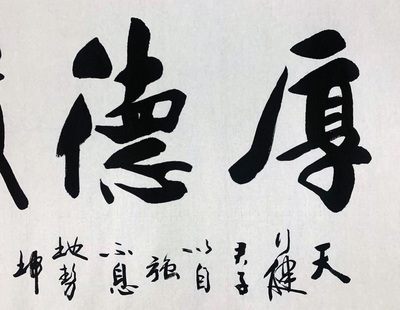 厚德
天行健君子以自強不息地勢坤